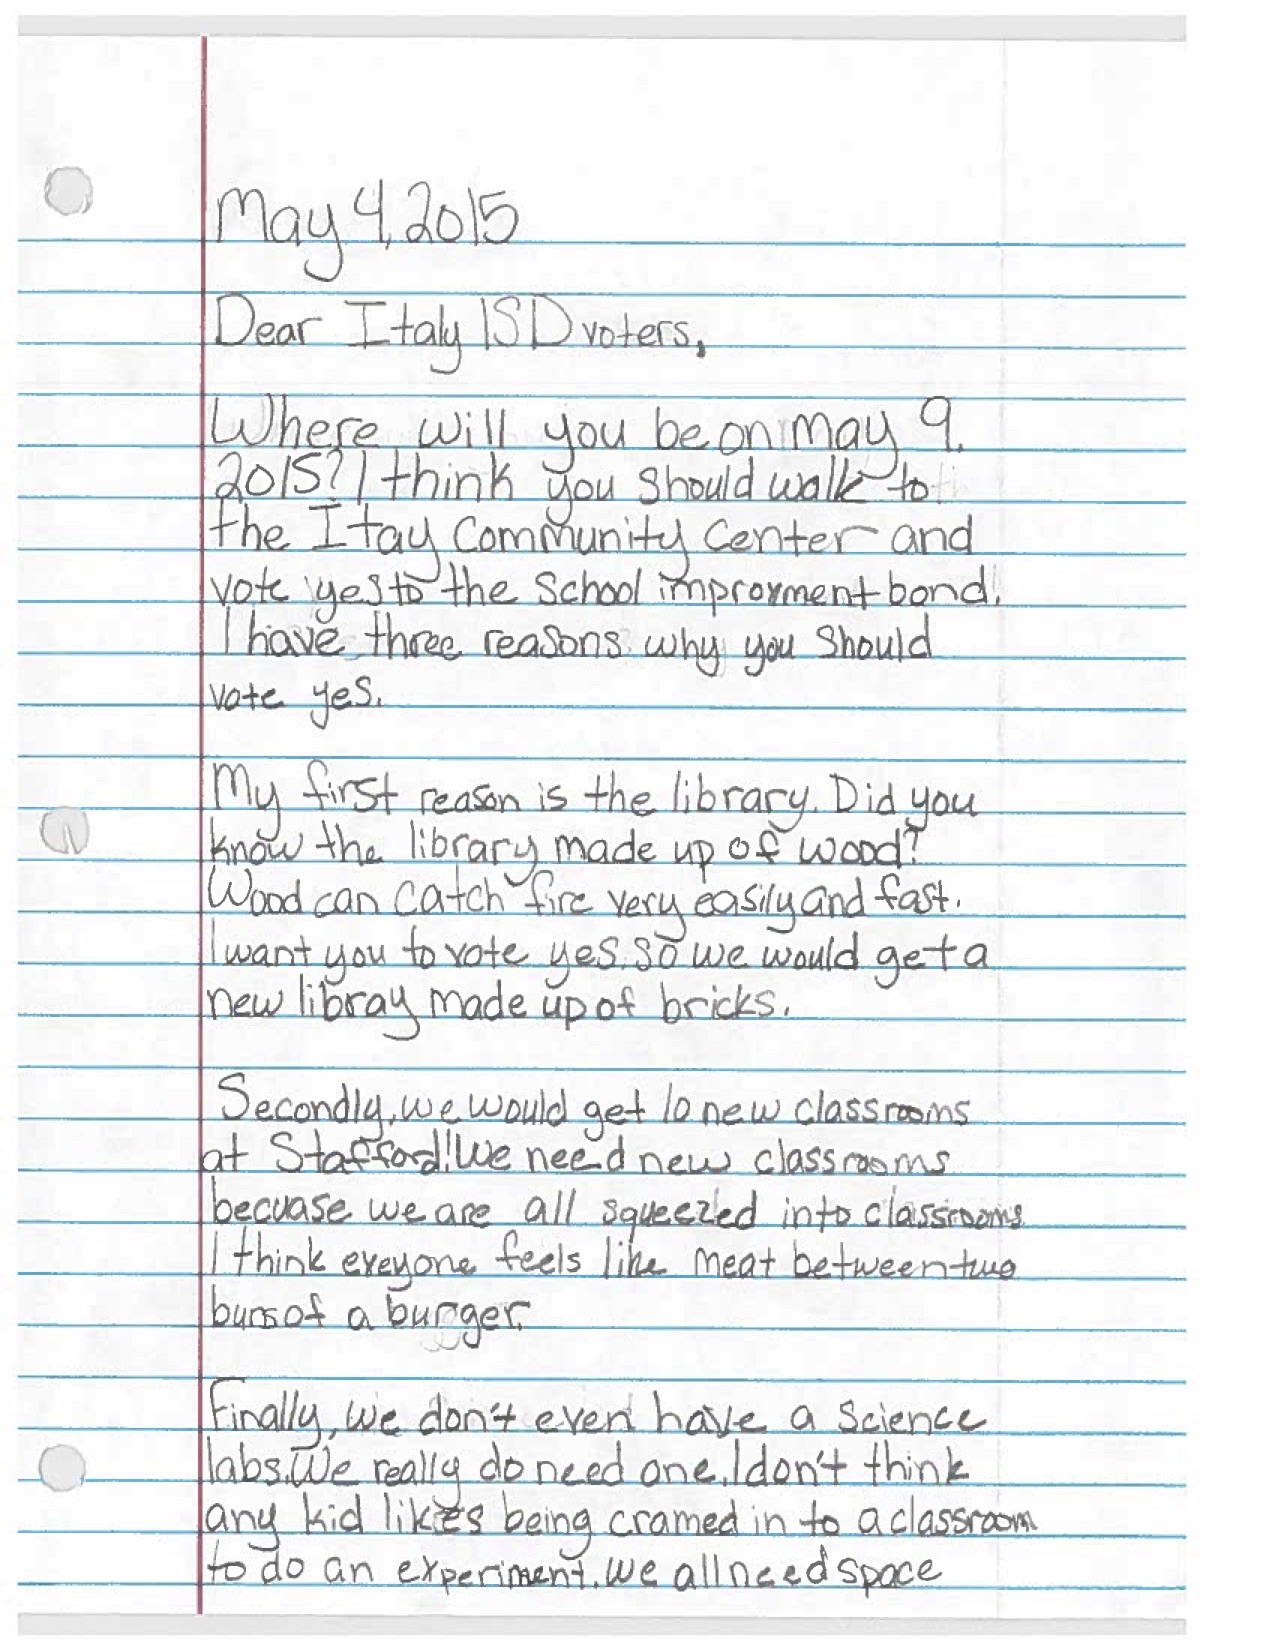 May 4, 2015
Dear Italy ISD voters,
Where will you be on may 9,
2015? I think you should walk to
the Itay Community Center and
vote yes to the School improvment bond.
I have three reasons why you should
vote yes.
My first reason is the library. Did you
know the library made up of wood?
Wood can catch fire very easily and fast.
I want you to vote yes. so we would get a
new libray made up of bricks.
Secondly, we would get 10 new classrooms
at Stafford! We need new classrooms
becuase we are all squeezed into classrooms.
I think eveyone feels like meat between two
buns of a burger.
Finally, we don't even have a science
labs. We really do need one. I don't think
any kid likes being cramed in to a classroom
to do an experiment. we all need space